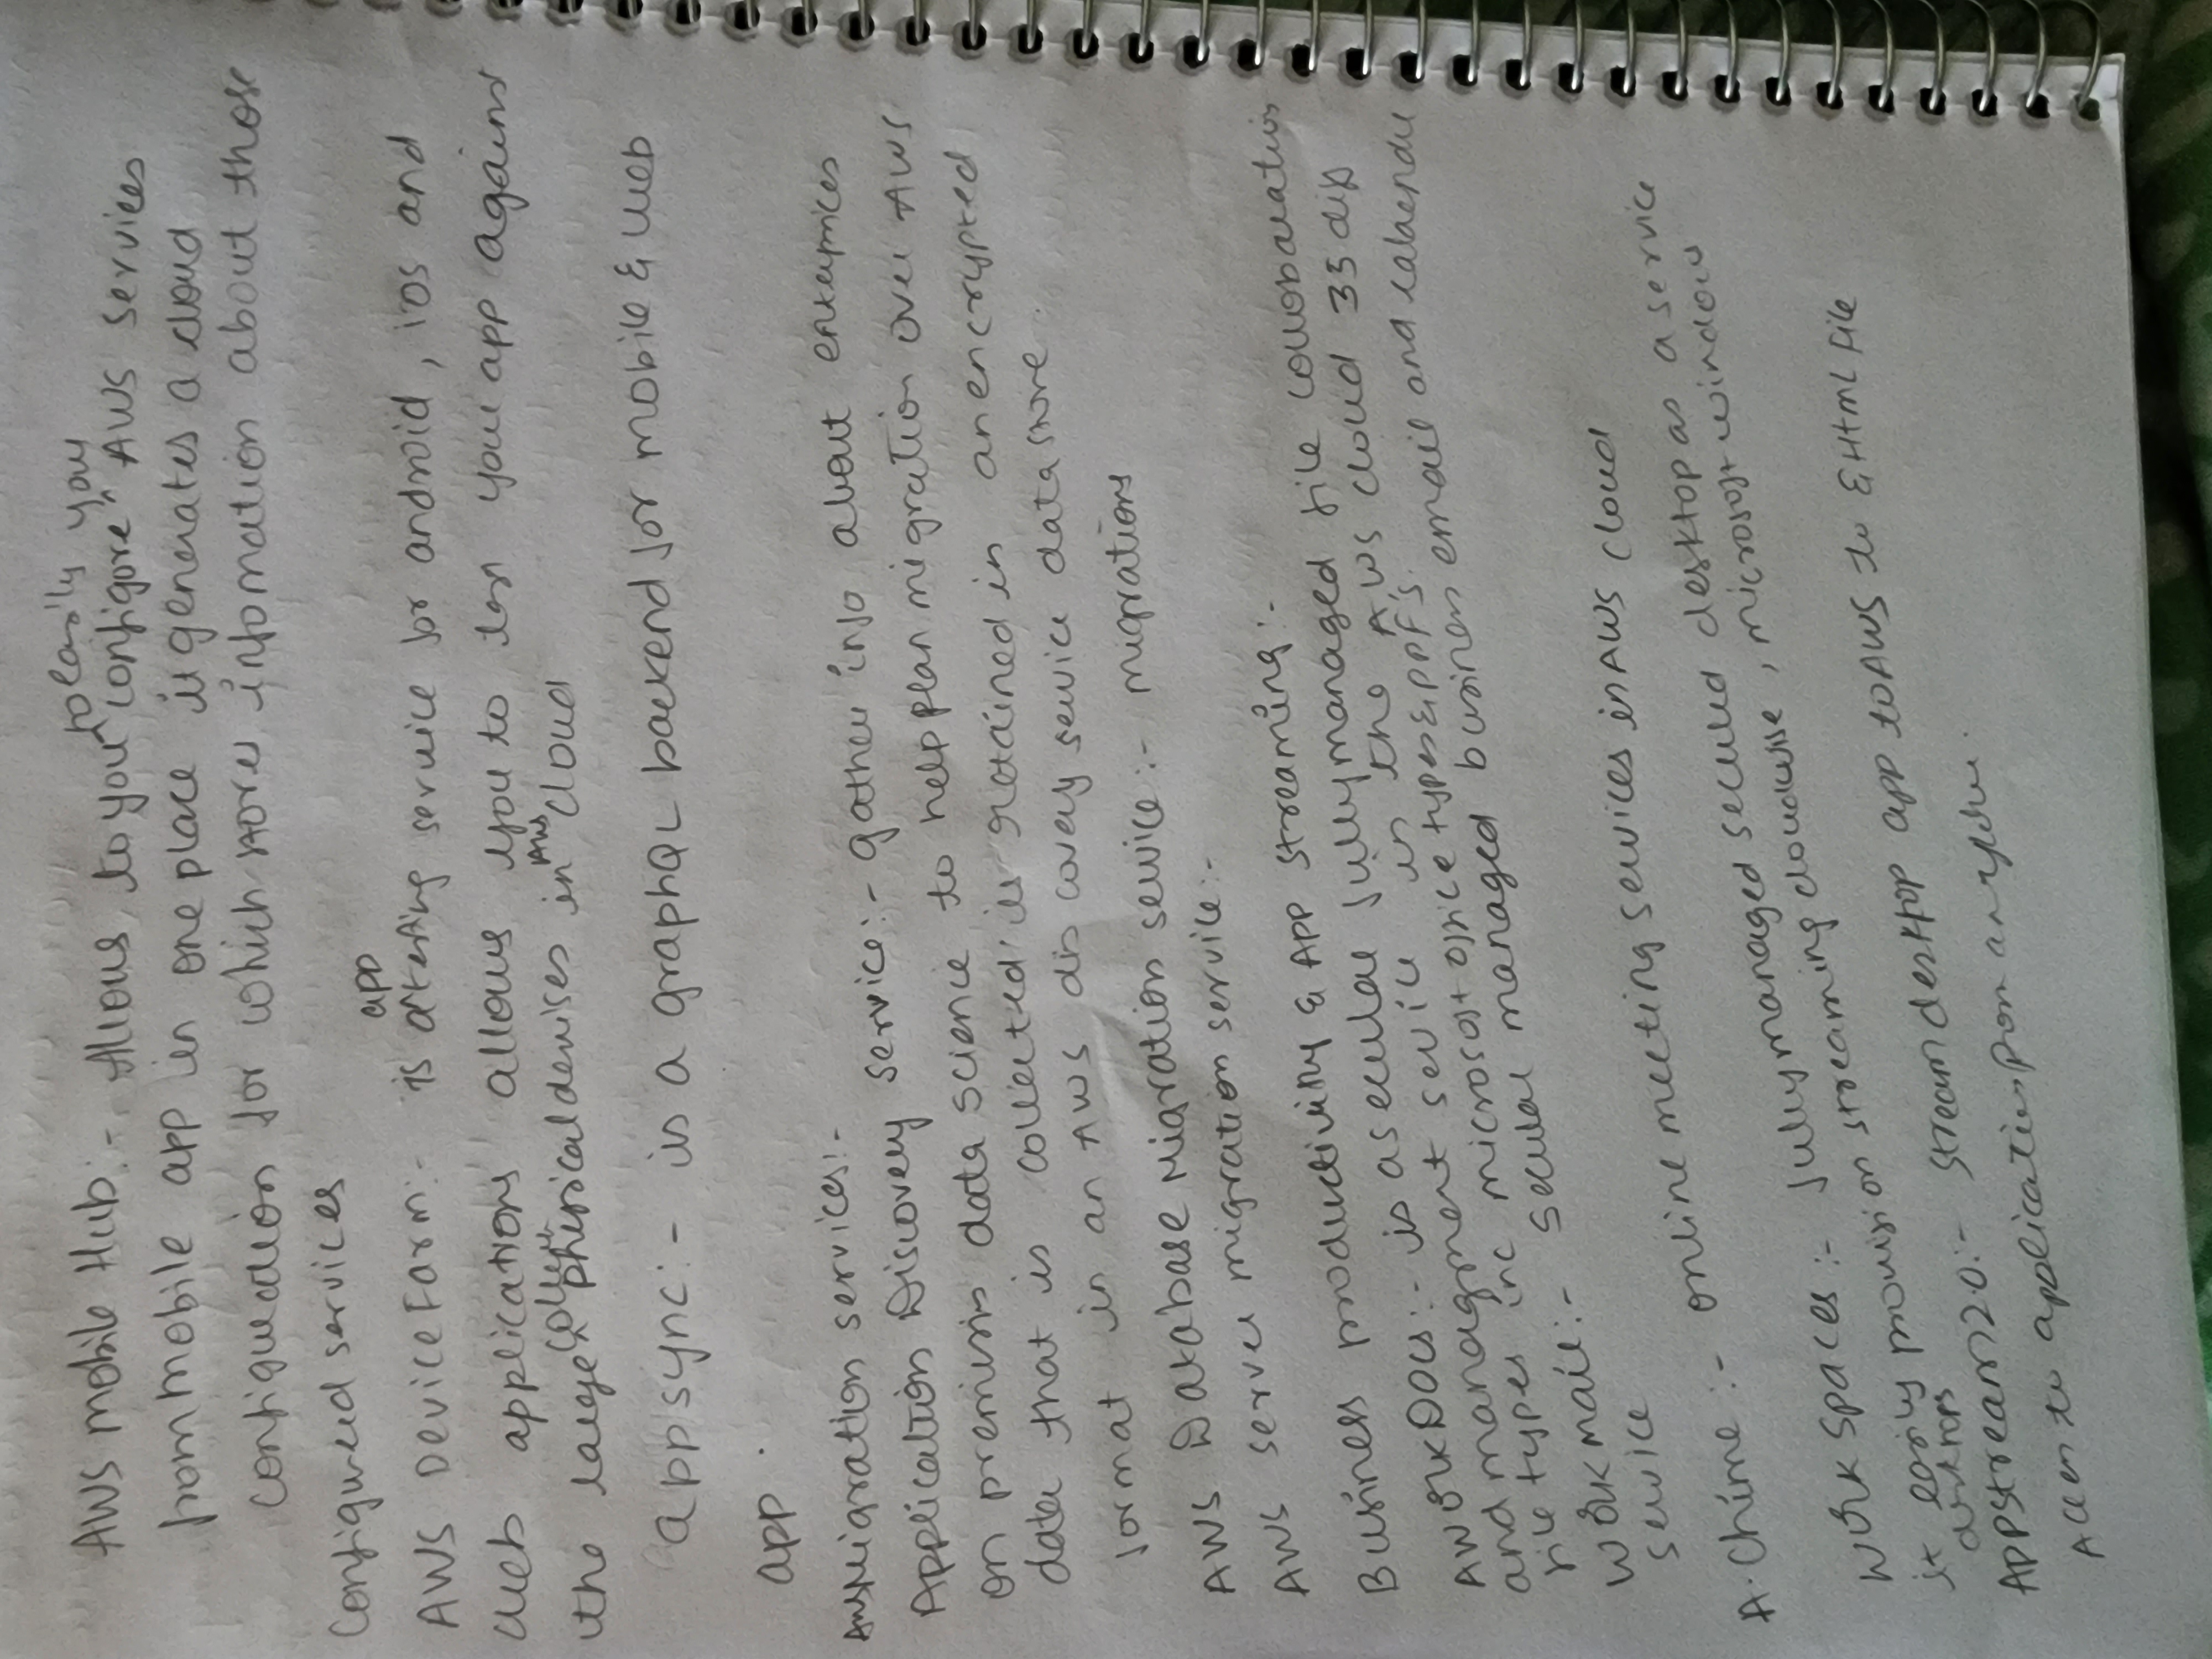 to easily you
AWS mobile Hub:- Allows to you "configure" AWS services
from mobile app in one place it generates a cloud
configuration for which stores information about those
configured services
app
AWS Device Farm:- is a testing service for android, ios and
web applications allows you to test your app against
AWS
the large collection physical devices in cloud
app sync:- is a graphQL backend for mobile & web
app.
AWS Migration services:-
Application Discovery service:- gather info about enterprices
on premisis data science to help plan migration over AWS
data that is collected is retained in an encrypted
format in an AWS discovery service data store.
AWS Database Migration service:- migrations
AWS server migration service:-
Business productivity & App streaming:-
A WorkDocs:- is a secular fully managed file collobaration
and managment service in the AWS cloud 35 dif
file types inc microsoft office types & PDF's.
Work mail:- secular managed business email and calaendar
service
A. Chime:- online meeting services in AWS cloud
Work spaces:- fully managed secured desktop as a service
it easily provision streaming cloud , microsoft windows
desktops
APPstream 2.0:- stream desktop app to AWS to & Html file
Access to application from any